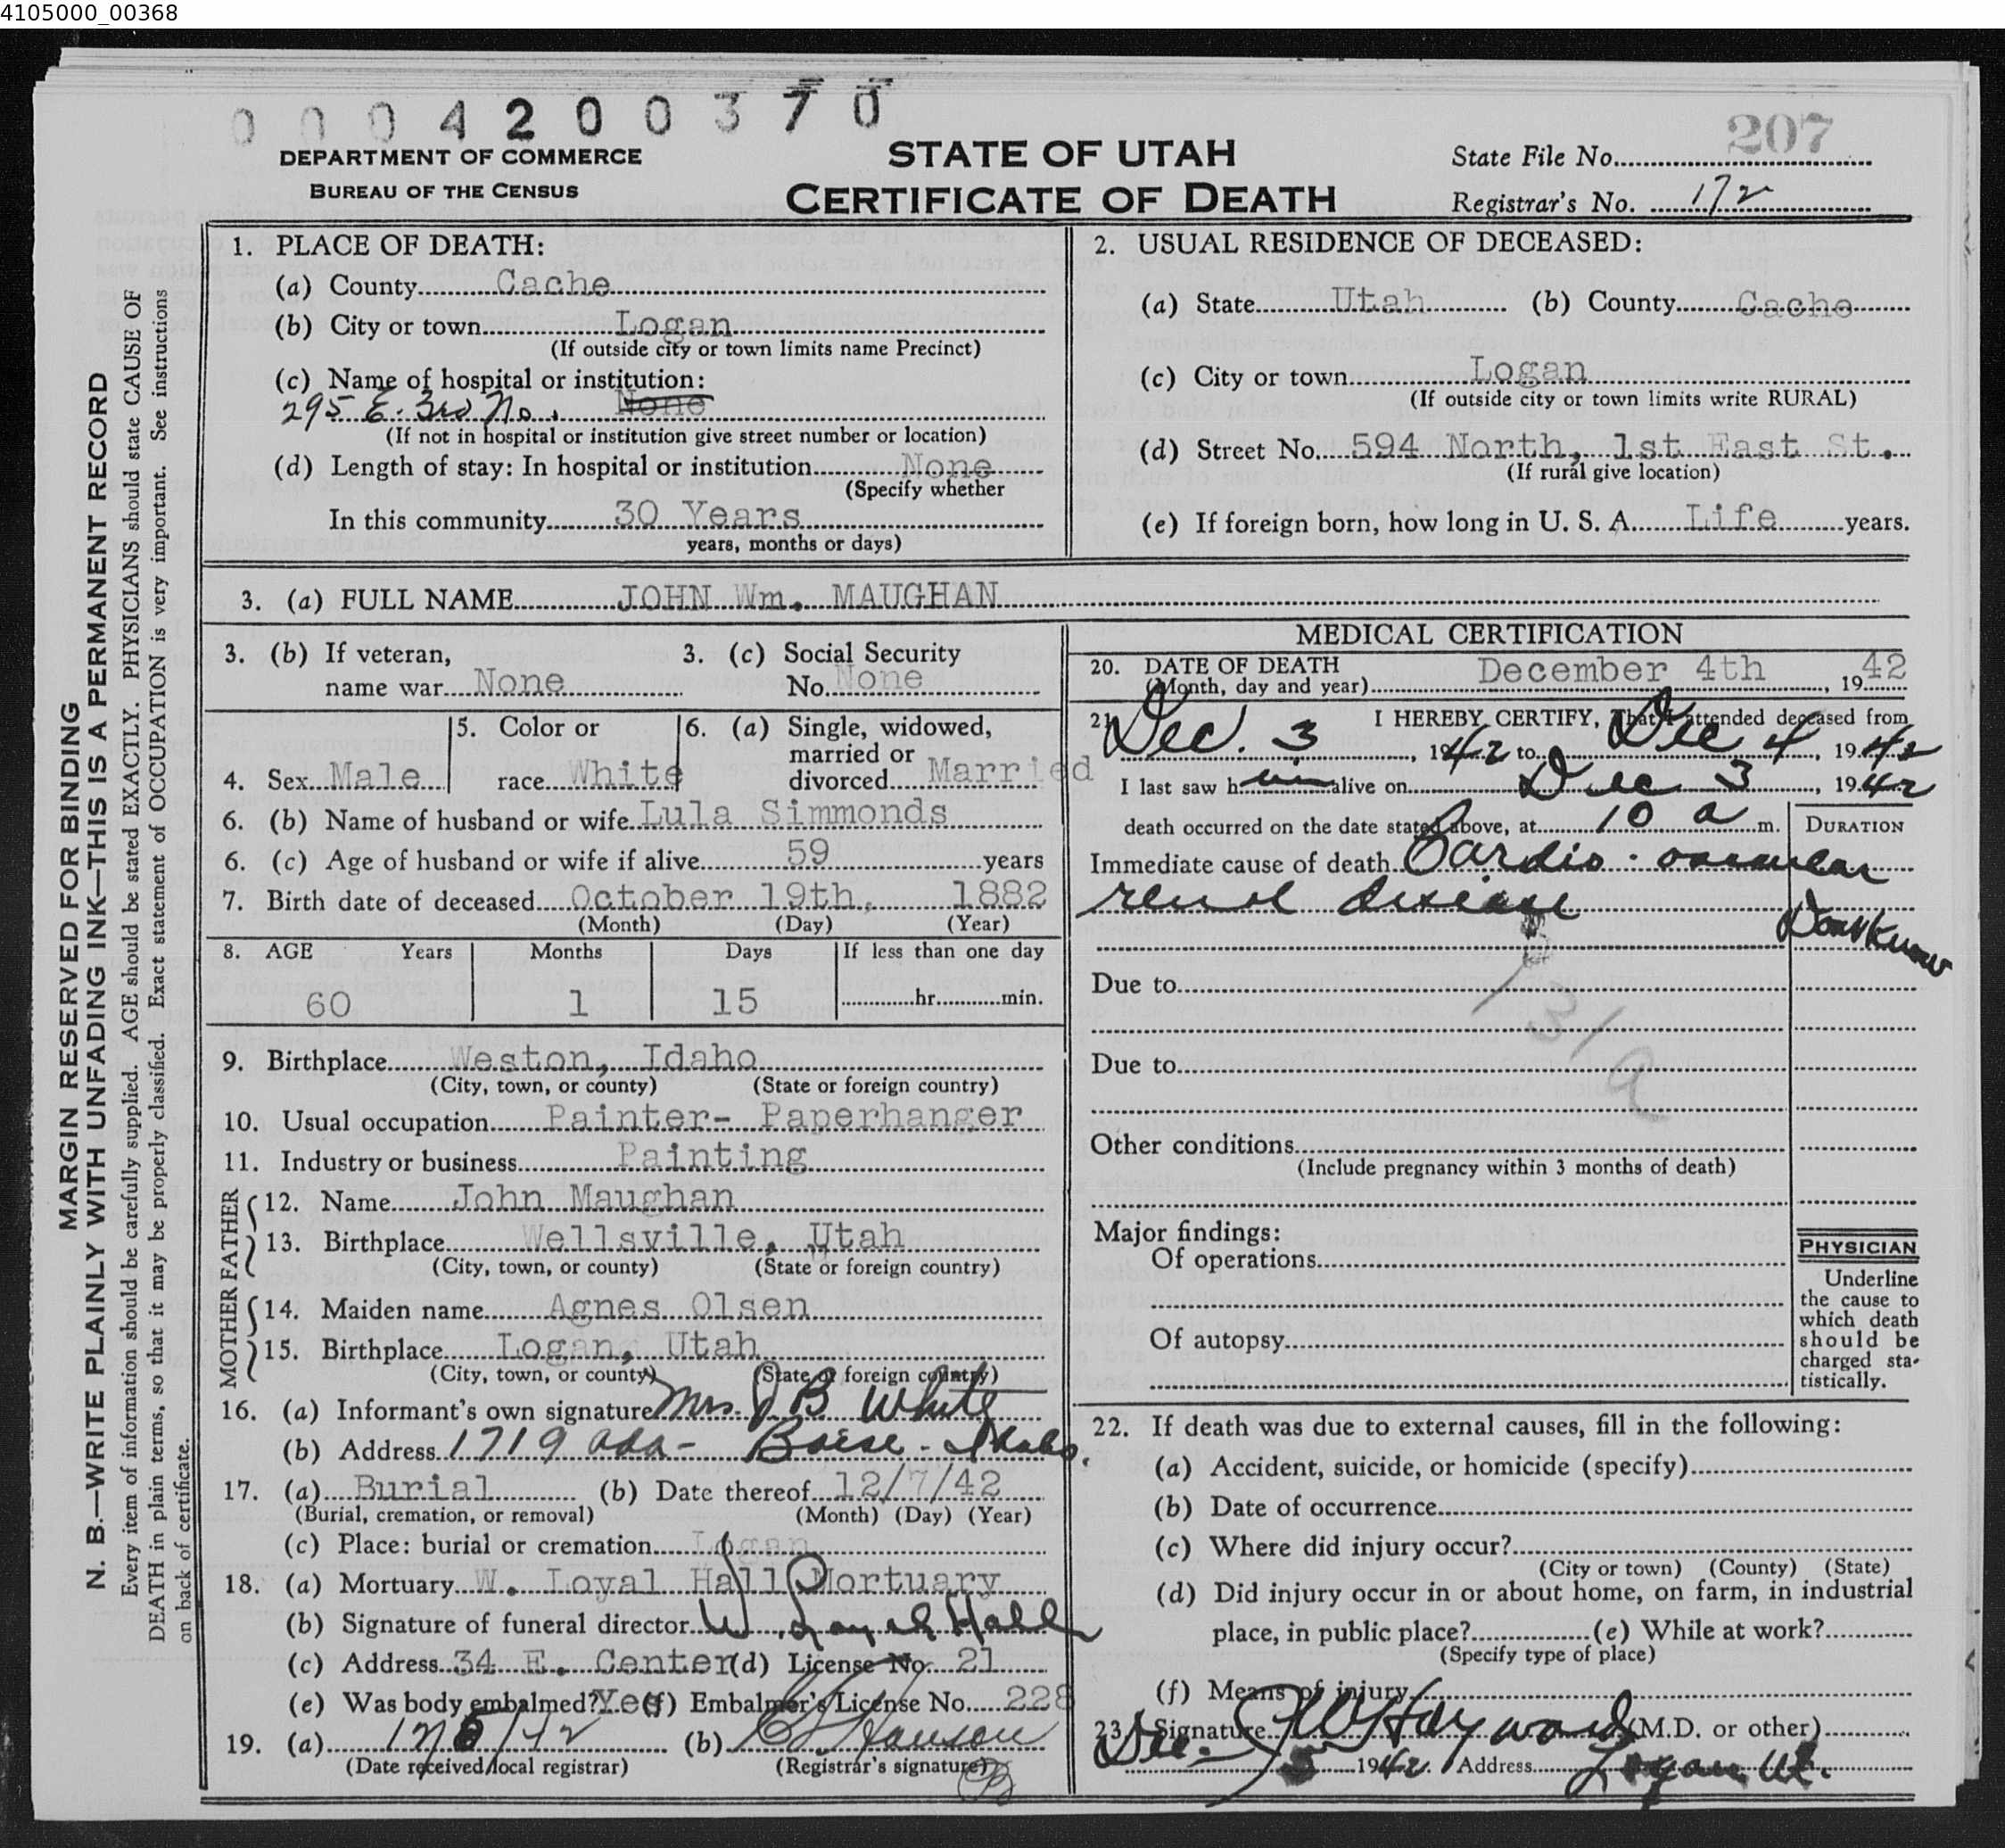 4105000_00368
0 0 0 4 2 0 0 3 7 0
207
DEPARTMENT OF COMMERCE
BUREAU OF THE CENSUS
STATE OF UTAH
CERTIFICATE OF DEATH
State File No.
Registrar's No. 172
MARGIN RESERVED FOR BINDING
N. B.—WRITE PLAINLY WITH UNFADING INK—THIS IS A PERMANENT RECORD
Every item of information should be carefully supplied. AGE should be stated EXACTLY. PHYSICIANS should state CAUSE OF
DEATH in plain terms, so that it may be properly classified. Exact statement of OCCUPATION is very important. See instructions
on back of certificate.
1. PLACE OF DEATH:
(a) County Cache
(b) City or town Logan
(If outside city or town limits name Precinct)
(c) Name of hospital or institution:
295 E. 3rd No. None
(If not in hospital or institution give street number or location)
(d) Length of stay: In hospital or institution None
(Specify whether
In this community 30 Years
years, months or days)
2. USUAL RESIDENCE OF DECEASED:
(a) State Utah (b) County Cache
(c) City or town Logan
(If outside city or town limits write RURAL)
(d) Street No. 594 North, 1st East St.
(If rural give location)
(e) If foreign born, how long in U. S. A. Life years.
3. (a) FULL NAME JOHN Wm. MAUGHAN
3. (b) If veteran,
name war None
3. (c) Social Security
No. None
4. Sex Male
5. Color or
race White
6. (a) Single, widowed,
married or
divorced Married
6. (b) Name of husband or wife Lula Simmonds
6. (c) Age of husband or wife if alive 59 years
7. Birth date of deceased October 19th, 1882
(Month) (Day) (Year)
8. AGE Years Months Days If less than one day
60 1 15 hr. min.
9. Birthplace Weston, Idaho
(City, town, or county) (State or foreign country)
10. Usual occupation Painter- Paperhanger
11. Industry or business Painting
FATHER
12. Name John Maughan
13. Birthplace Wellsville, Utah
(City, town, or county) (State or foreign country)
MOTHER
14. Maiden name Agnes Olsen
15. Birthplace Logan, Utah
(City, town, or county) (State or foreign country)
16. (a) Informant's own signature Mrs. J B White
(b) Address 1719 Ada - Boise - Idaho.
17. (a) Burial (b) Date thereof 12/7/42
(Burial, cremation, or removal) (Month) (Day) (Year)
(c) Place: burial or cremation Logan
18. (a) Mortuary W. Loyal Hall Mortuary
(b) Signature of funeral director W. Loyal Hall
(c) Address 34 E. Center (d) License No. 21
(e) Was body embalmed? Yes (f) Embalmer's License No. 228
19. (a) 12/5/42 (b) Hanson
(Date received local registrar) (Registrar's signature)
MEDICAL CERTIFICATION
20. DATE OF DEATH
(Month, day and year) December 4th, 1942
21. I HEREBY CERTIFY, That I attended deceased from
Dec. 3, 1942 to Dec 4, 1942
I last saw him alive on Dec 3, 1942
death occurred on the date stated above, at 10 a m.
DURATION
Immediate cause of death Cardio-vascular
renal disease
Dont Know
Due to
131a
Due to
Other conditions
(Include pregnancy within 3 months of death)
Major findings:
Of operations
Of autopsy
PHYSICIAN
Underline
the cause to
which death
should be
charged sta-
tistically.
22. If death was due to external causes, fill in the following:
(a) Accident, suicide, or homicide (specify)
(b) Date of occurrence
(c) Where did injury occur?
(City or town) (County) (State)
(d) Did injury occur in or about home, on farm, in industrial
place, in public place? (e) While at work?
(Specify type of place)
(f) Means of injury
23. Signature Hayward (M.D. or other)
Dec. 5 1942. Address Logan Ut.